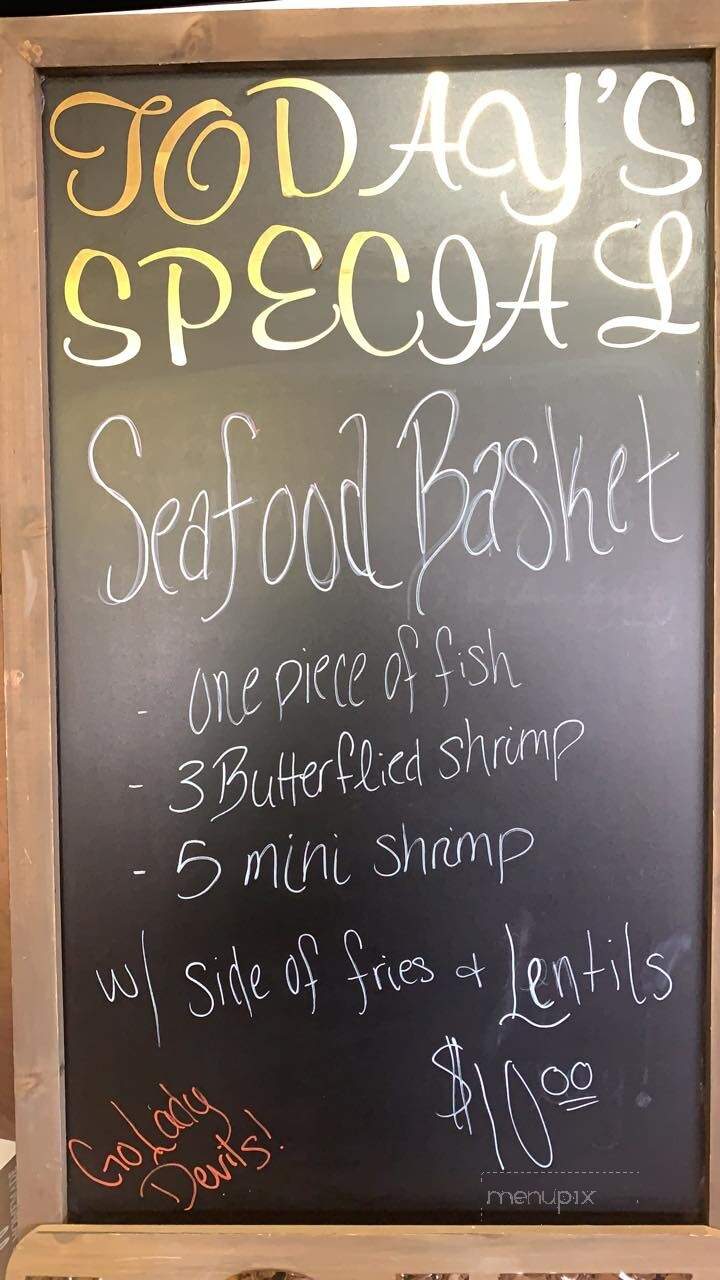 TODAY'S
SPECIAL
Seafood Basket
- one piece of fish
- 3 Butterflied shrimp
- 5 mini shrimp
w/ side of fries & Lentils
$10.00
Go Lady
Devils!
menupix